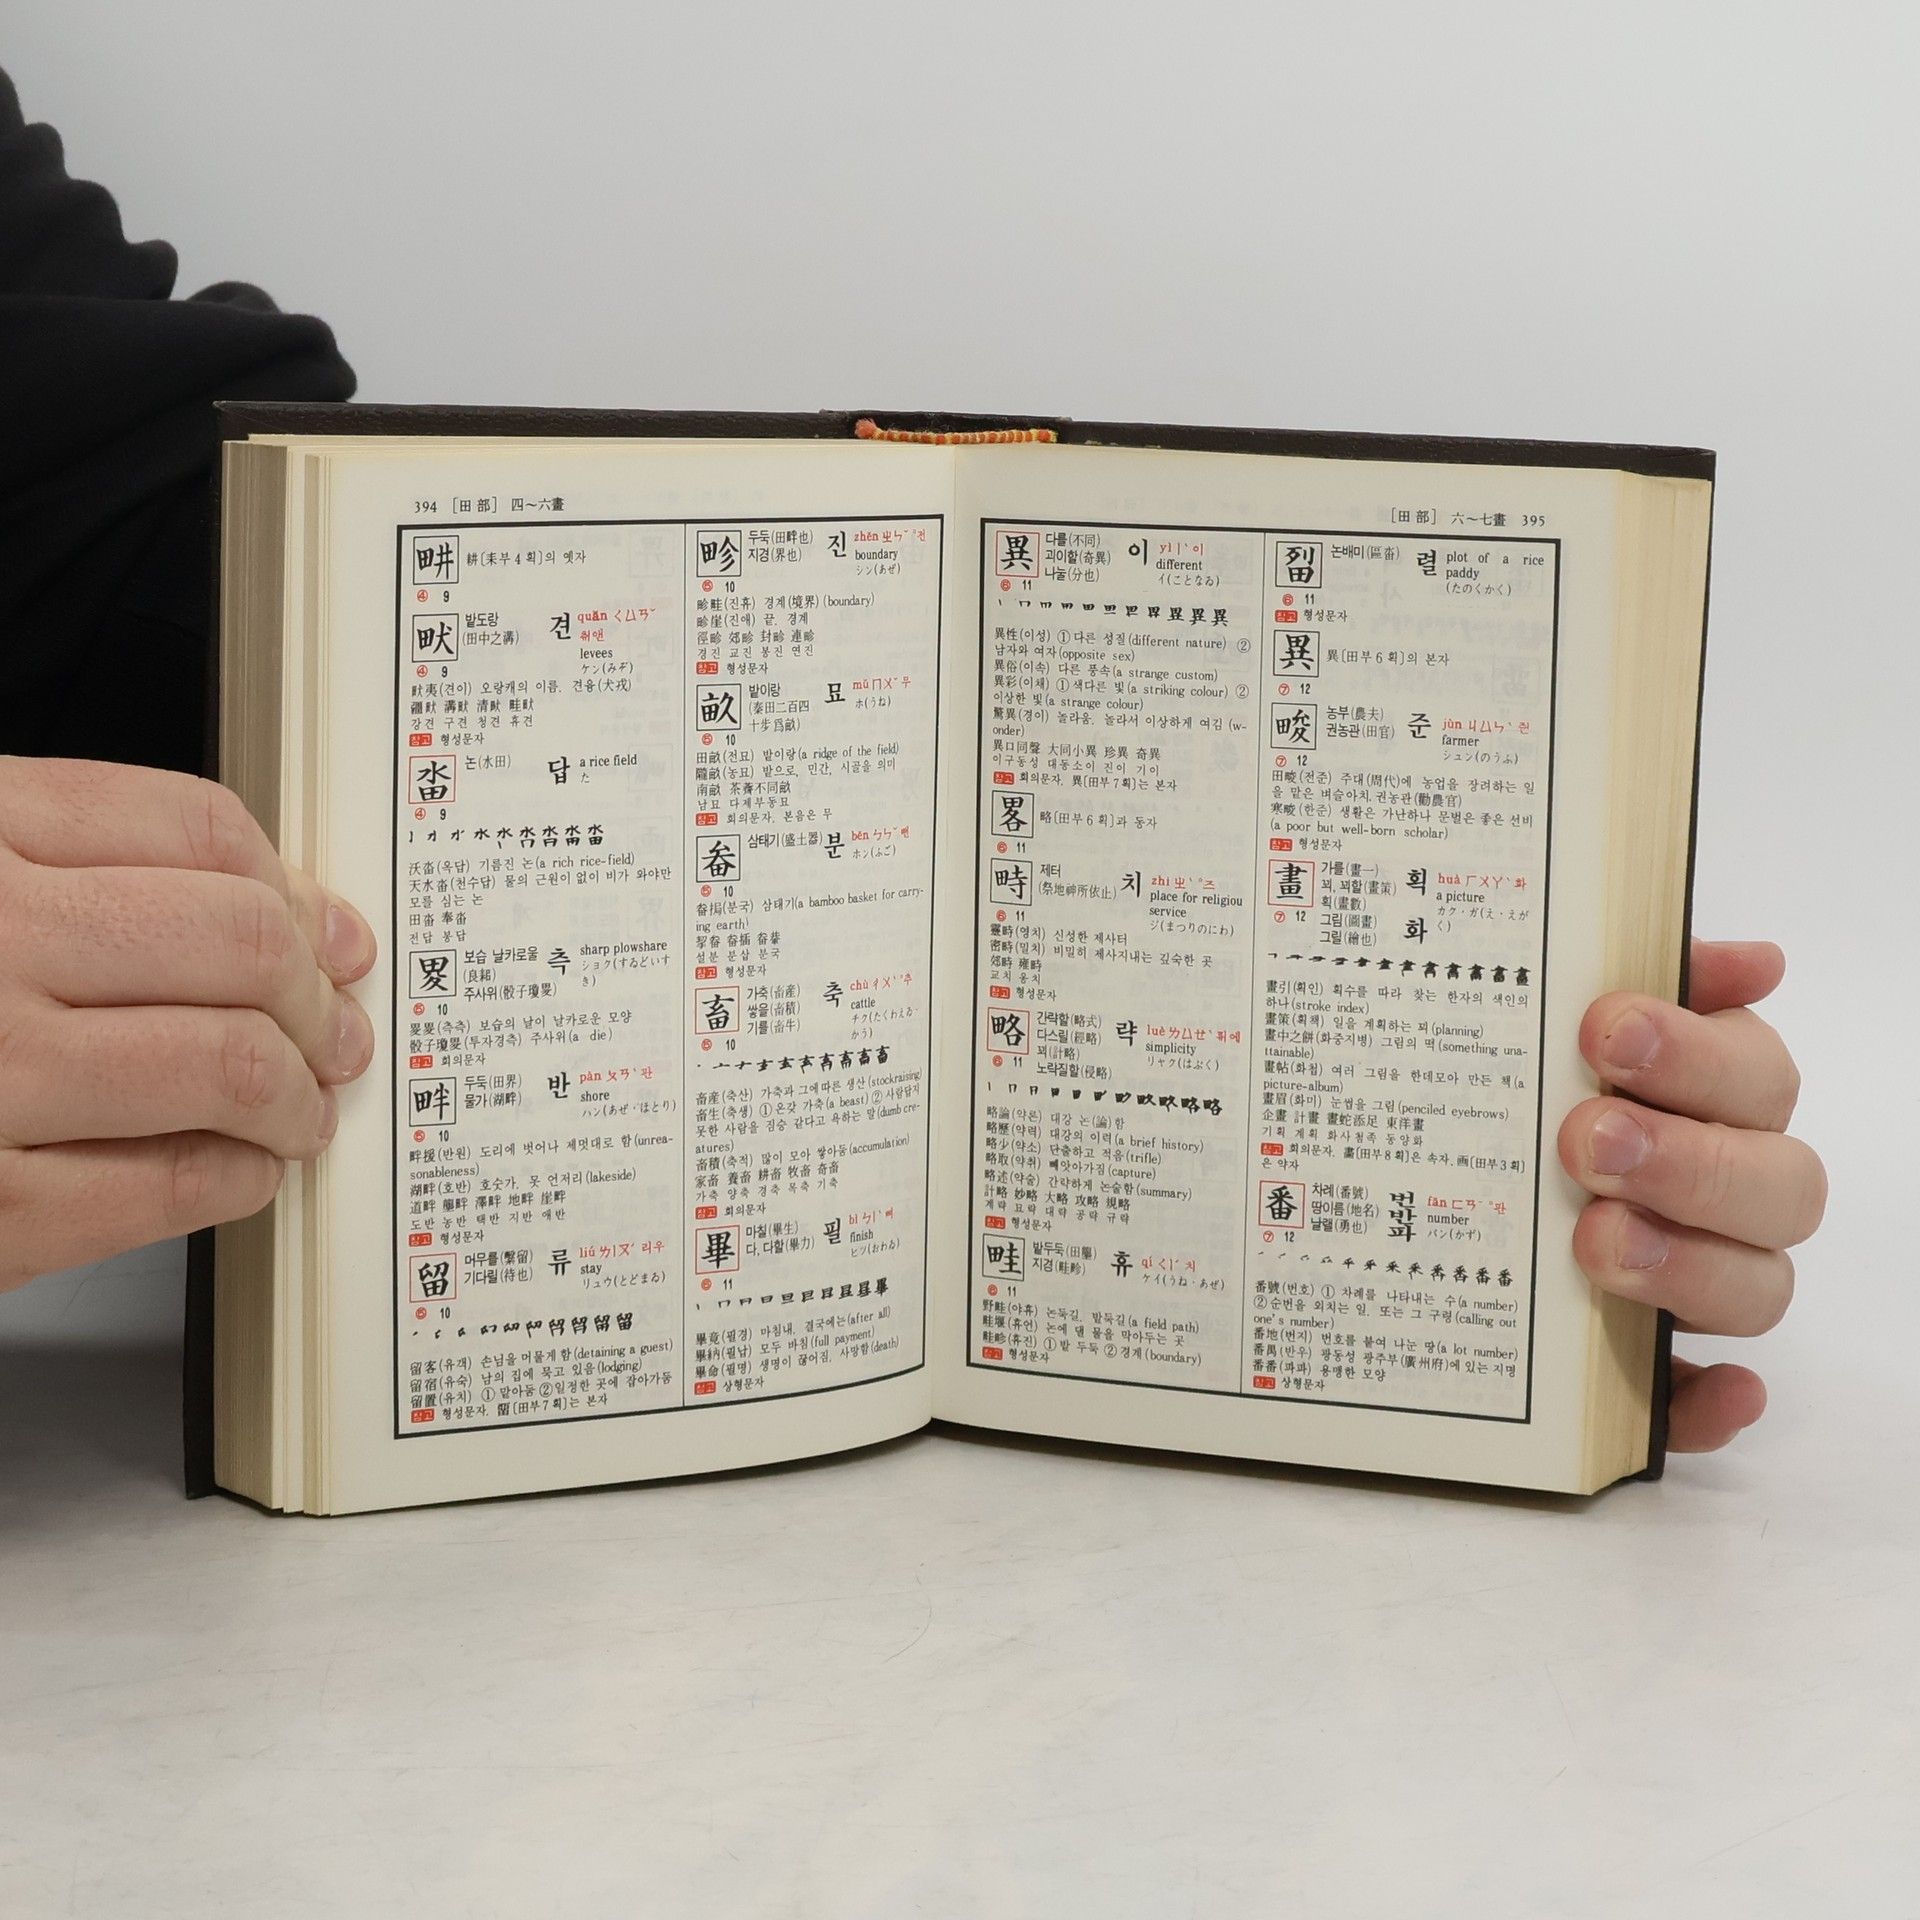 394 [田 部] 四～六畫
畊 耕[耒부 4 획]의 옛자
④ 9
畎 밭도랑 견 quǎn ㄑㄩㄢˇ
(田中之溝) 취앤
levees
④ 9 ケン(みぞ)
畎夷(견이) 오랑캐의 이름. 견융(犬戎)
疆畎 溝畎 清畎 畦畎
강견 구견 청견 휴견
참고 형성문자
畓 논(水田) 답 a rice field
た
④ 9
沃畓(옥답) 기름진 논(a rich rice-field)
天水畓(천수답) 물의 근원이 없이 비가 와야만
모를 심는 논
田畓 奉畓
전답 봉답
畟 보습 날카로울 측 sharp plowshare
(良耜) ショク(すゐどいす
주사위(骰子瓊畟) き)
⑤ 10
畟畟(측측) 보습의 날이 날카로운 모양
骰子瓊畟(투자경측) 주사위(a die)
참고 회의문자
畔 두둑(田界) 반 pàn ㄆㄢˋ 판
물가(湖畔) shore
ハン(あぜ·ほとり)
⑤ 10
畔援(반원) 도리에 벗어나 제멋대로 함(unrea-
sonableness)
湖畔(호반) 호숫가. 못 언저리(lakeside)
道畔 壟畔 澤畔 地畔 崖畔
도반 농반 택반 지반 애반
참고 형성문자
留 머무를(繫留) 류 liú ㄌㄧㄡˊ 리우
기다릴(待也) stay
リュウ(とどまゐ)
⑤ 10
留客(유객) 손님을 머물게 함(detaining a guest)
留宿(유숙) 남의 집에 묵고 있음(lodging)
留置(유치) ① 맡아둠 ②일정한 곳에 잡아가둠
참고 형성문자. 畱[田부7획]는 본자
畛 두둑(田畔也) 진 zhěn ㄓㄣˇ 전
지경(界也) boundary
シン(あぜ)
⑤ 10
畛畦(진휴) 경계(境界)(boundary)
畛崖(진애) 끝. 경계
徑畛 郊畛 封畛 連畛
경진 교진 봉진 연진
참고 형성문자
畝 밭이랑 묘 mǔ ㄇㄨˇ 무
(秦田二百四 ホ(うね)
十步爲畝)
⑤ 10
田畝(전묘) 밭이랑(a ridge of the field)
隴畝(농묘) 밭으로, 민간, 시골을 의미
南畝 茶薺不同畝
남묘 다제부동묘
참고 회의문자. 본음은 무
畚 삼태기(盛土器) 분 běn ㄅㄣˇ 뻔
ホン(ふご)
⑤ 10
畚挶(분국) 삼태기(a bamboo basket for carry-
ing earth)
挈畚 畚插 畚梮
설분 분삽 분국
참고 형성문자
畜 가축(畜産) 축 chù ㄔㄨˋ 추
쌓을(畜積) cattle
기를(畜牛) チク(たくわえゐ·
かう)
⑤ 10
畜産(축산) 가축과 그에 따른 생산(stockraising)
畜生(축생) ① 온갖 가축(a beast) ② 사람답지
못한 사람을 짐승 같다고 욕하는 말(dumb cre-
atures)
畜積(축적) 많이 모아 쌓아둠(accumulation)
家畜 養畜 耕畜 牧畜 奇畜
가축 양축 경축 목축 기축
참고 회의문자
畢 마칠(畢生) 필 bì ㄅㄧˋ 삐
다, 다할(畢力) finish
ヒツ(おわゐ)
⑥ 11
畢竟(필경) 마침내. 결국에는(after all)
畢納(필납) 모두 바침(full payment)
畢命(필명) 생명이 끊어짐. 사망함(death)
참고 상형문자
[田 部] 六～七畫 395
異 다를(不同) 이 yì ㄧˋ 이
괴이할(奇異) different
나눌(分也) イ(ことなゐ)
⑥ 11
異性(이성) ① 다른 성질(different nature) ②
남자와 여자(opposite sex)
異俗(이속) 다른 풍속(a strange custom)
異彩(이채) ① 색다른 빛(a striking colour) ②
이상한 빛(a strange colour)
驚異(경이) 놀라움. 놀라서 이상하게 여김 (w-
onder)
異口同聲 大同小異 珍異 奇異
이구동성 대동소이 진이 기이
참고 회의문자. 異[田부7획]는 본자
畧 略[田부6획]과 동자
⑥ 11
畤 제터 치 zhì ㄓˋ 즈
(祭地神所依止) place for religiou
service
⑥ 11 ジ(まつりのにわ)
靈畤(영치) 신성한 제사터
密畤(밀치) 비밀히 제사지내는 깊숙한 곳
郊畤 雍畤
교치 옹치
참고 형성문자
略 간략할(略式) 략 luè ㄌㄩㄝˋ 뤼에
다스릴(經略) simplicity
꾀(計略) リャク(はぶく)
노략질할(侵略)
⑥ 11
略論(약론) 대강 논(論)함
略歷(약력) 대강의 이력(a brief history)
略少(약소) 단출하고 적음(trifle)
略取(약취) 빼앗아가짐(capture)
略述(약술) 간략하게 논술함(summary)
計略 妙略 大略 攻略 規略
계략 묘략 대략 공략 규략
참고 형성문자
畦 밭두둑(田壟) 휴 qí ㄑㄧˊ 치
지경(畦畛) ケイ(うね·あぜ)
⑥ 11
野畦(야휴) 논둑길. 밭둑길(a field path)
畦堰(휴언) 논에 댄 물을 막아두는 곳
畦畛(휴진) ① 밭 두둑 ② 경계(boundary)
참고 형성문자
논배미(區畓) 렬 plot of a rice
paddy
(たのくかく)
⑥ 11
참고 형성문자
異 異[田부 6획]의 본자
⑦ 12
畯 농부(農夫) 준 jùn ㄐㄩㄣˋ 쥔
권농관(田官) farmer
シュン(のうふ)
⑦ 12
田畯(전준) 주대(周代)에 농업을 장려하는 일
을 맡은 벼슬아치. 권농관(勸農官)
寒畯(한준) 생활은 가난하나 문벌은 좋은 선비
(a poor but well-born scholar)
참고 형성문자
畫 가를(畫一) 획 huà ㄏㄨㄚˋ 화
꾀, 꾀할(畫策) a picture
획(畫數) カク·ガ(え·えが
그림(圖畫) 화 く)
그릴(繪也)
⑦ 12
畫引(획인) 획수를 따라 찾는 한자의 색인의
하나(stroke index)
畫策(획책) 일을 계획하는 꾀(planning)
畫中之餅(화중지병) 그림의 떡(something una-
ttainable)
畫帖(화첩) 여러 그림을 한데모아 만든 책(a
picture-album)
畫眉(화미) 눈썹을 그림(penciled eyebrows)
企畫 計畫 畫蛇添足 東洋畫
기획 계획 화사첨족 동양화
참고 회의문자. 畵[田부8획]은 속자. 画[田부3획]
은 약자
番 차례(番號) 번 fān ㄈㄢ 판
땅이름(地名) 반 number
날랠(勇也) 파 バン(かず)
⑦ 12
番號(번호) ① 차례를 나타내는 수(a number)
② 순번을 외치는 일. 또는 그 구령(calling out
one's number)
番地(번지) 번호를 붙여 나눈 땅(a lot number)
番禺(반우) 광동성 광주부(廣州府)에 있는 지명
番番(파파) 용맹한 모양
참고 상형문자